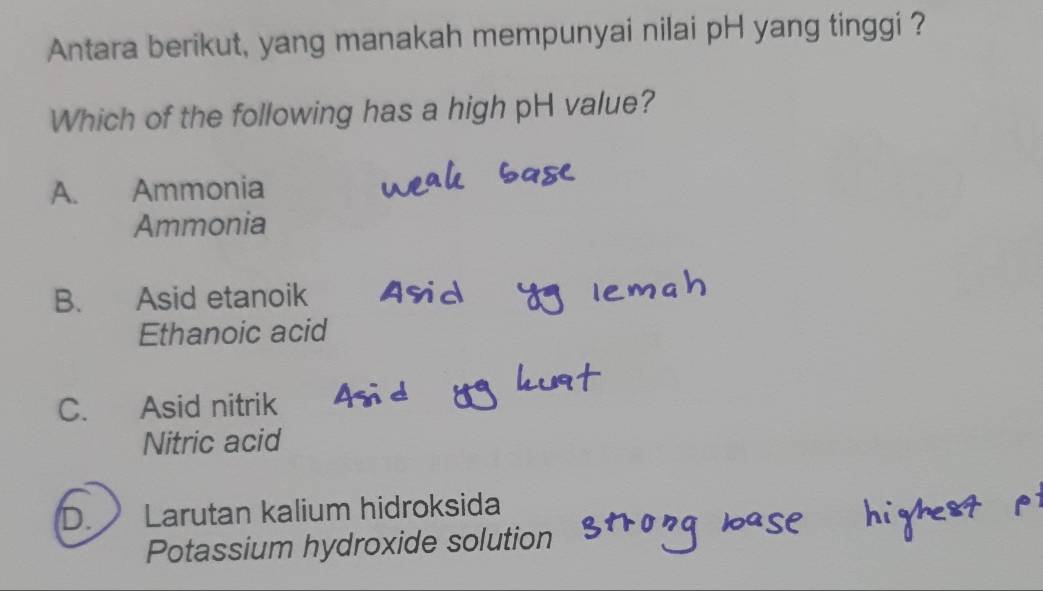 Antara berikut, yang manakah mempunyai nilai pH yang tinggi ?
Which of the following has a high pH value?
A. Ammonia weak base
Ammonia
B. Asid etanoik Asid yg lemah
Ethanoic acid
C. Asid nitrik Asid yg kuat
Nitric acid
D. Larutan kalium hidroksida strong base highest
Potassium hydroxide solution